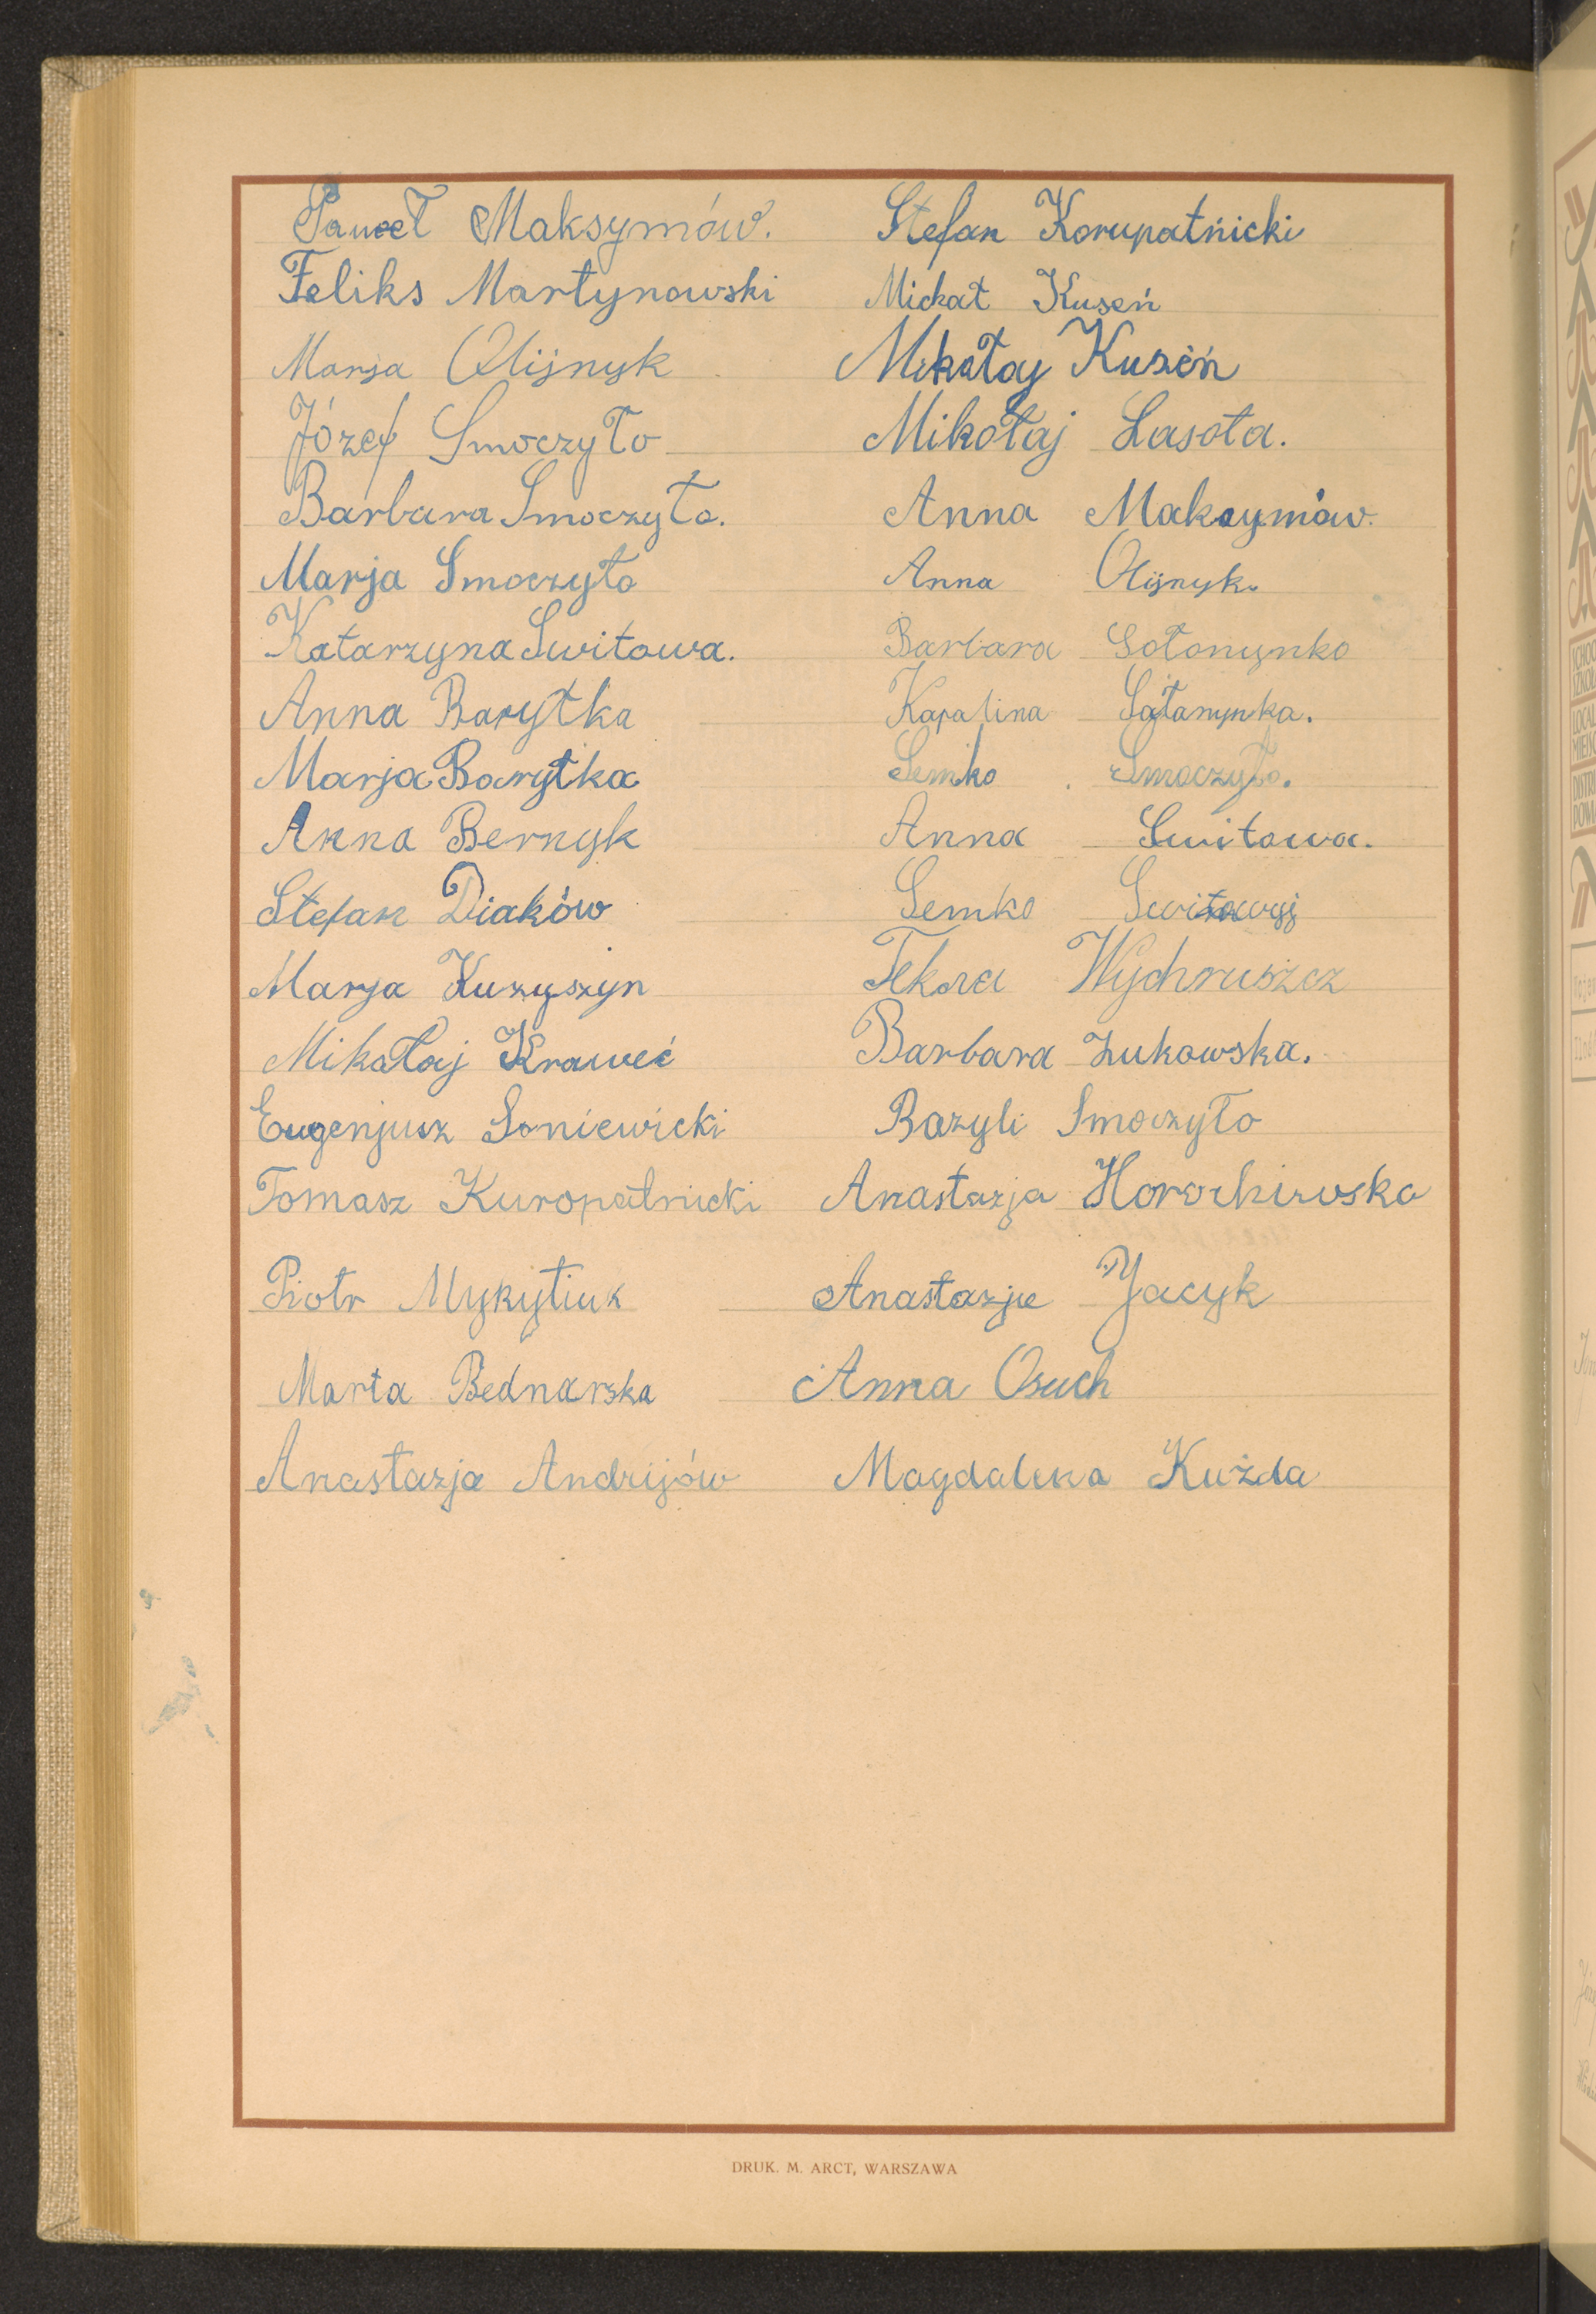 Paweł Maksymów.
Feliks Martynowski
Marja Olijnyk
Józef Smoczyło
Barbara Smoczyło.
Marja Smoczyło
Katarzyna Switowa.
Anna Baryłka
Marja Baryłka
Anna Bernyk
Stefan Diaków
Marja Kuzyszyn
Mikołaj Kraweć
Eugenjusz Soniewicki
Tomasz Kuropatnicki
Piotr Mykytiuk
Marta Bednarska
Anastazja Andrijów
Stefan Korupatnicki
Michał Kuseń
Mikołaj Kuseń
Mikołaj Lasota.
Anna Maksymów.
Anna Olijnyk.
Barbara Sołonynko
Karalina Sałanynka.
Semko Smoczyło.
Anna Switowa.
Semko Switowyj
Tekla Wychruszcz
Barbara Żukowska.
Bazyli Smoczyło
Anastazja Horochiwska
Anastazja Jacyk
Anna Osuch
Magdalena Kużda
DRUK. M. ARCT, WARSZAWA